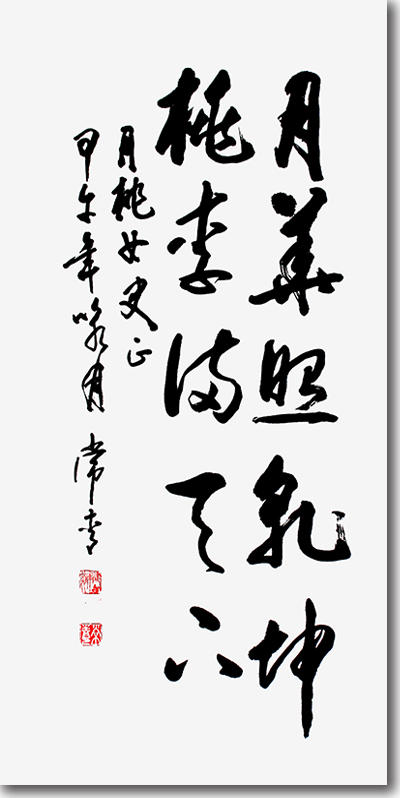 月華照乾坤
桃李满天下
月桃女史正
甲午年咏月 常青